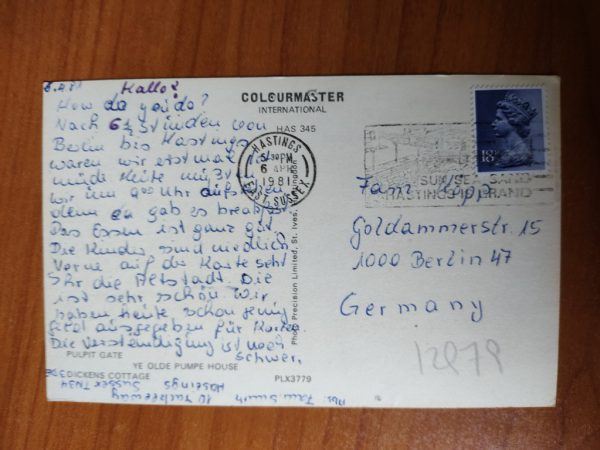 5.4.81 Hallo!
How do you do?
Nach 6½ Stunden von
Berlin bis Hastings
waren wir erstmal
müde. Heute mußt
wir um 9⁰⁰ Uhr aufstehen
denn da gab es breakfast.
Das Essen ist ganz gut.
Die Kinder sind niedlich.
Vorne auf der Karte seht
Ihr die Altstadt. Die
ist sehr schön. Wir
haben heute schon genug
Geld ausgegeben für Karten.
Die Verständigung ist noch
schwer.
PULPIT GATE
YE OLDE PUMPE HOUSE
DICKENS COTTAGE
PLX3779
COLOURMASTER
INTERNATIONAL
HAS 345
Photo Precision Limited, St. Ives,
HASTINGS
5 30 PM
6 APR
1981
EAST SUSSEX
SUN SEA SAND
HASTINGS IS GRAND
18P
Fam.
Goldammerstr. 15
1000 Berlin 47
Germany
12979
Abs: Fam. Smith
10
Hastings
Sussex TN34